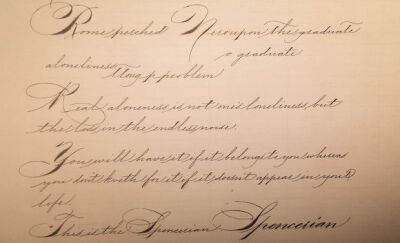 Rome perched Neroupon the graduate
o graduate
aloneliness p problem
Real aloneness is not one's loneliness, but
the loss in the endless noise.
You will have it if it belongs to you whereas
you don't kveth for it if it doesn't appear in your
life.
This is the Spencerian Spencerian